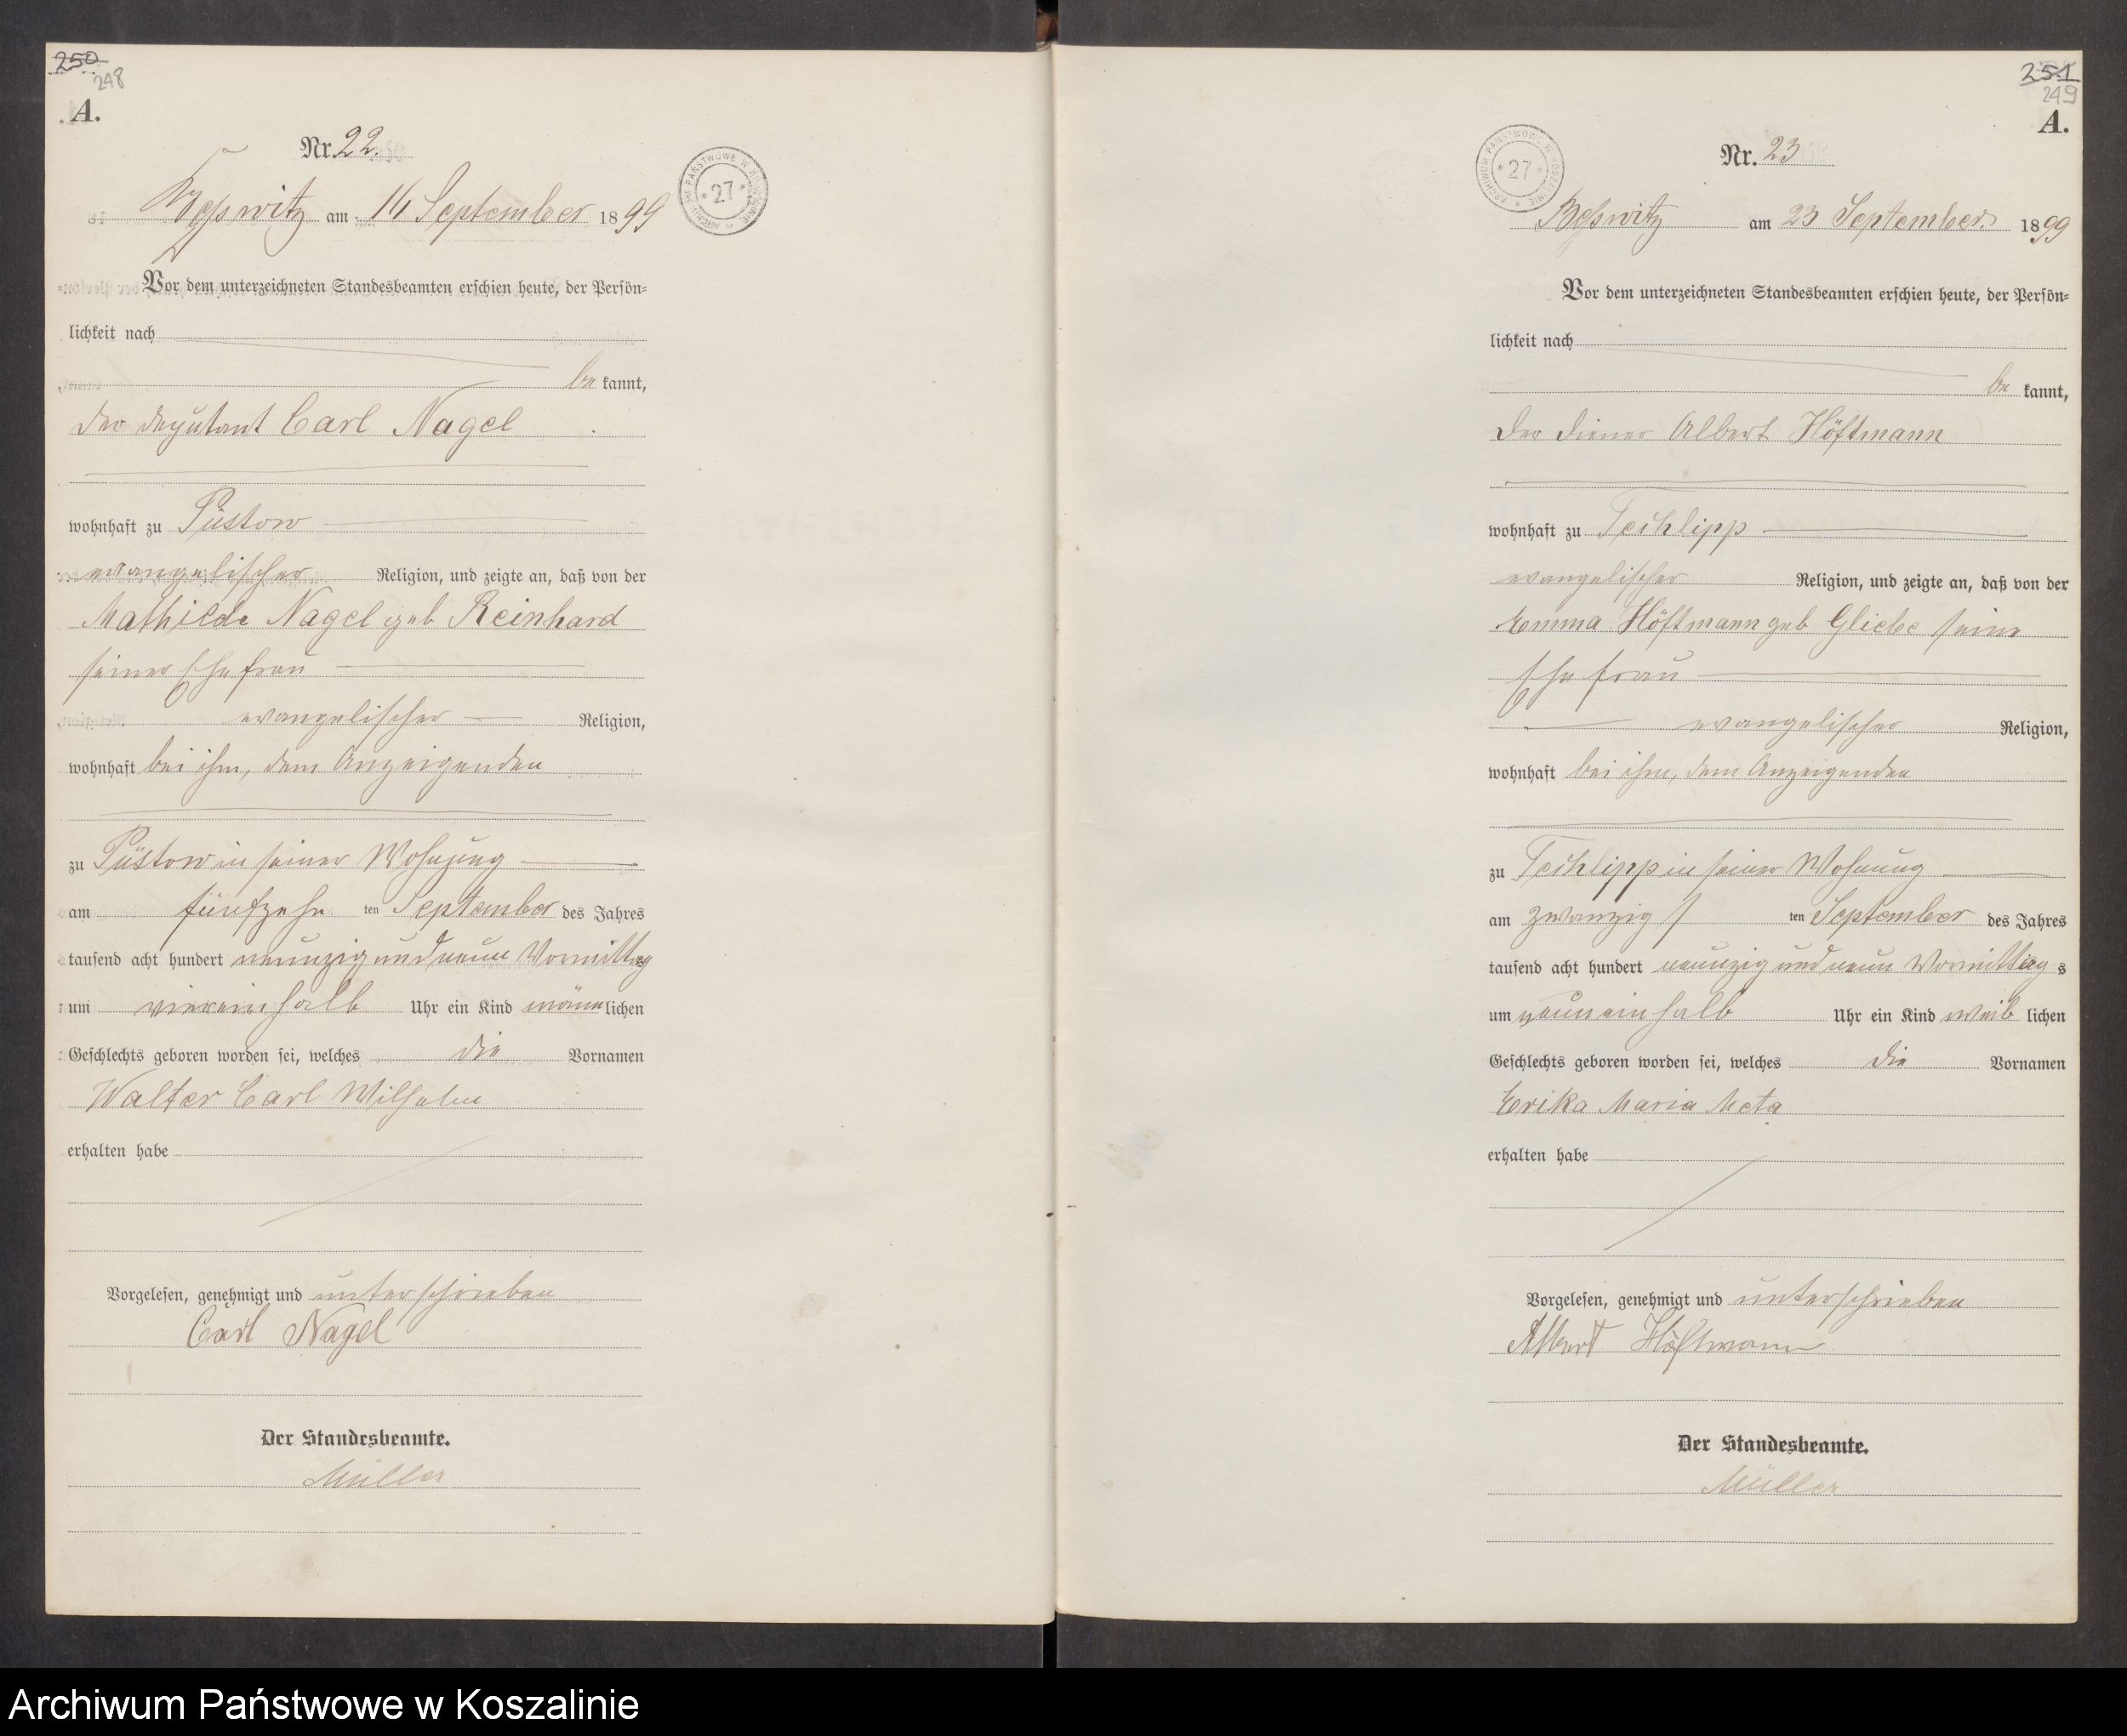 250
248
A.
Nr. 22.
am 16 September 1899
Vor dem unterzeichneten Standesbeamten erschien heute, der Persön=
lichkeit nach
be kannt,
der Deputant Carl Nagel
wohnhaft zu Püstow
evangelischer Religion, und zeigte an, daß von der
Mathilde Nagel geb Reinhard
seiner Ehefrau
evangelischer Religion,
wohnhaft bei ihm, dem Anzeigenden
zu Püstow in seiner Wohnung
am fünfzehn ten September des Jahres
tausend acht hundert neunzig und neun Vormittags
um viereinhalb Uhr ein Kind männlichen
Geschlechts geboren worden sei, welches die Vornamen
Walter Carl Wilhelm
erhalten habe
Vorgelesen, genehmigt und unterschrieben
Carl Nagel
Der Standesbeamte.
Müller
ARCHIWUM PAŃSTWOWE W KOSZALINIE
* 27 *
251
249
A.
Nr. 23
Beßwitz am 23 September 1899
Vor dem unterzeichneten Standesbeamten erschien heute, der Persön=
lichkeit nach
be kannt,
der Diener Albert Höftmann
wohnhaft zu Techlipp
evangelischer Religion, und zeigte an, daß von der
Emma Höftmann geb seine
Ehefrau
evangelischer Religion,
wohnhaft bei ihm, dem Anzeigenden
zu Techlipp in seiner Wohnung
am zwanzigs ten September des Jahres
tausend acht hundert neunzig und neun Vormittag s
um neuneinhalb Uhr ein Kind weib lichen
Geschlechts geboren worden sei, welches die Vornamen
Erika Maria Meta
erhalten habe
Vorgelesen, genehmigt und unterschrieben
Albert Höftmann
Der Standesbeamte.
Müller
ARCHIWUM PAŃSTWOWE W KOSZALINIE
* 27 *
Archiwum Państwowe w Koszalinie